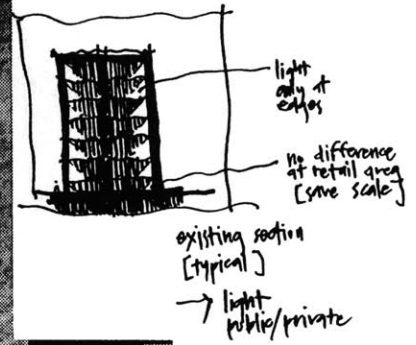 light
only at
edges
no difference
at retail area
[same scale]
existing section
[typical]
→ light
public/private